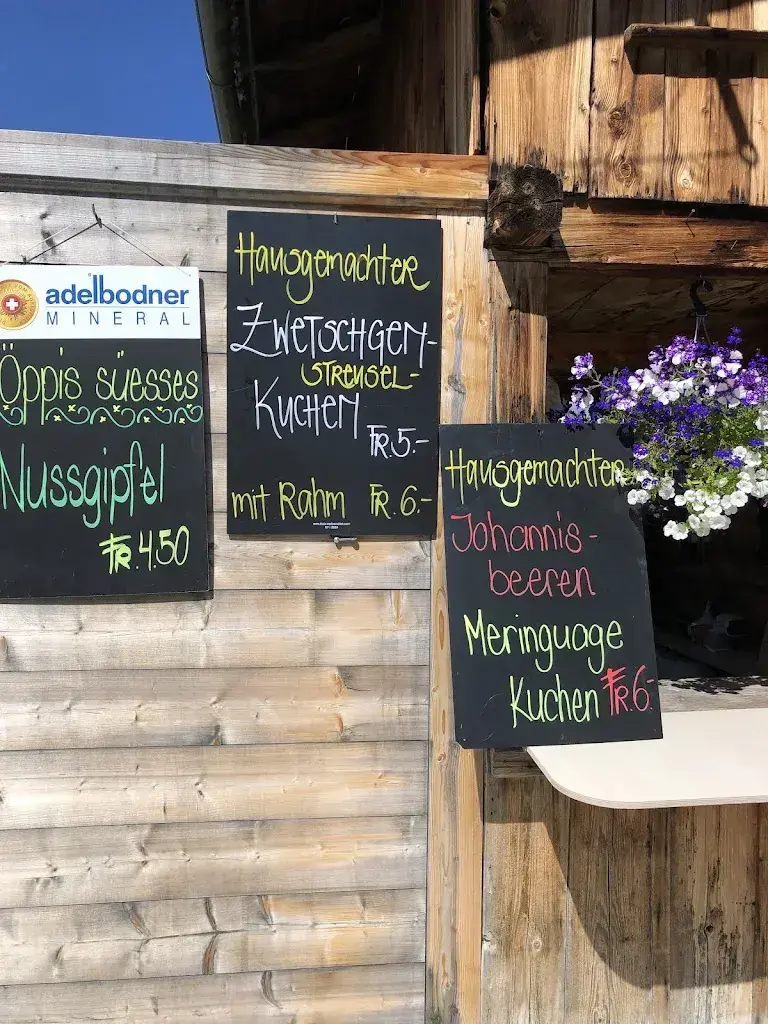 adelbodner
MINERAL
Öppis süesses
Nussgipfel
FR. 4.50
Hausgemachter
Zwetschgen-
Streusel-
Kuchen
FR. 5.-
mit Rahm FR. 6.-
Hausgemachter
Johannis-
beeren
Meringuage
Kuchen FR. 6.-